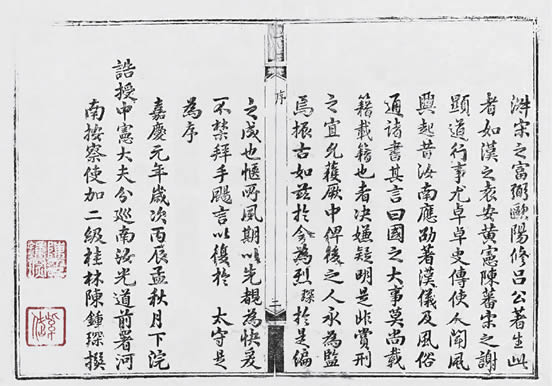 宋之富弼歐陽修呂公著生此
者如漢之袁安黃憲陳蕃宋之謝
顯道行事尤卓卓史傳使人聞風
興起昔汝南應劭著漢儀及風俗
通諸書其言曰國之大事莫尚載
籍載籍也者決嫌疑明是非賞刑
之宜允獲厥中俾後之人永為監
焉振古如茲於今為烈琛於是編
序
二
之成也愜所夙期以先覩為快爰
不禁拜手颺言以復於 太守是
為序
嘉慶元年歲次丙辰孟秋月下浣
誥授中憲大夫分巡南汝光道前署河
南按察使加二級桂林陳鍾琛撰